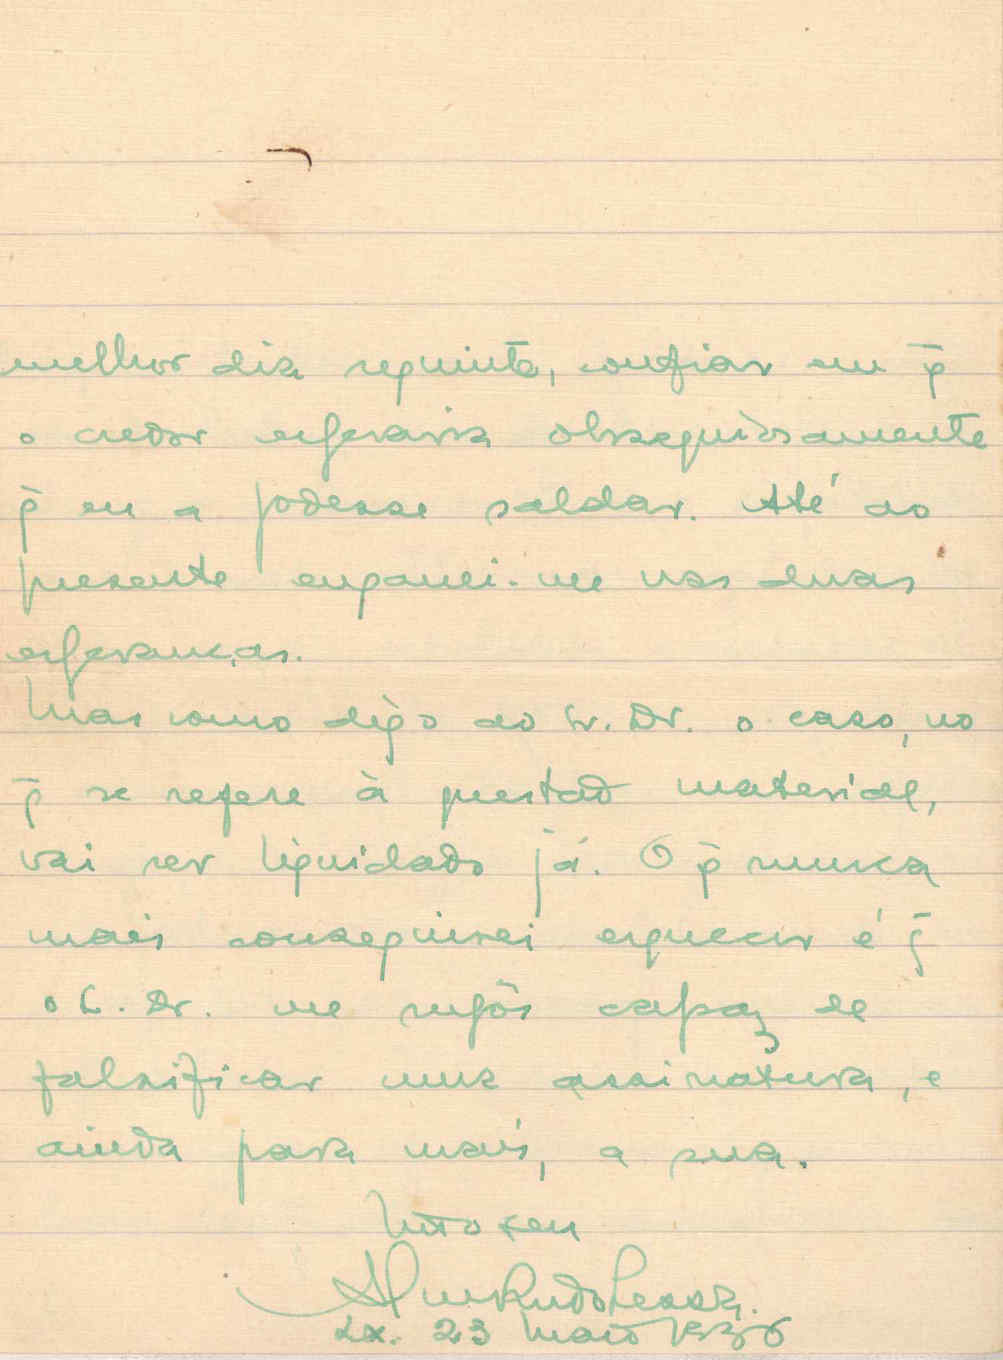 melhor dia seguinte, confiar em q̄
o credor esperaria obsequiosamente
q̄ eu a podesse saldar. Até ao
presente enganei-me nas duas
esperanças.
Mas como digo ao Sr. Dr. o caso, no
q̄ se refere à material,
vai ser liquidado já. O q̄ nunca
mais conseguirei esquecer é q̄
o S. Dr. me supôs capaz de
falsificar uma assinatura, e
ainda para mais, a sua.
Mto seu
Lx. 23 Maio 1936